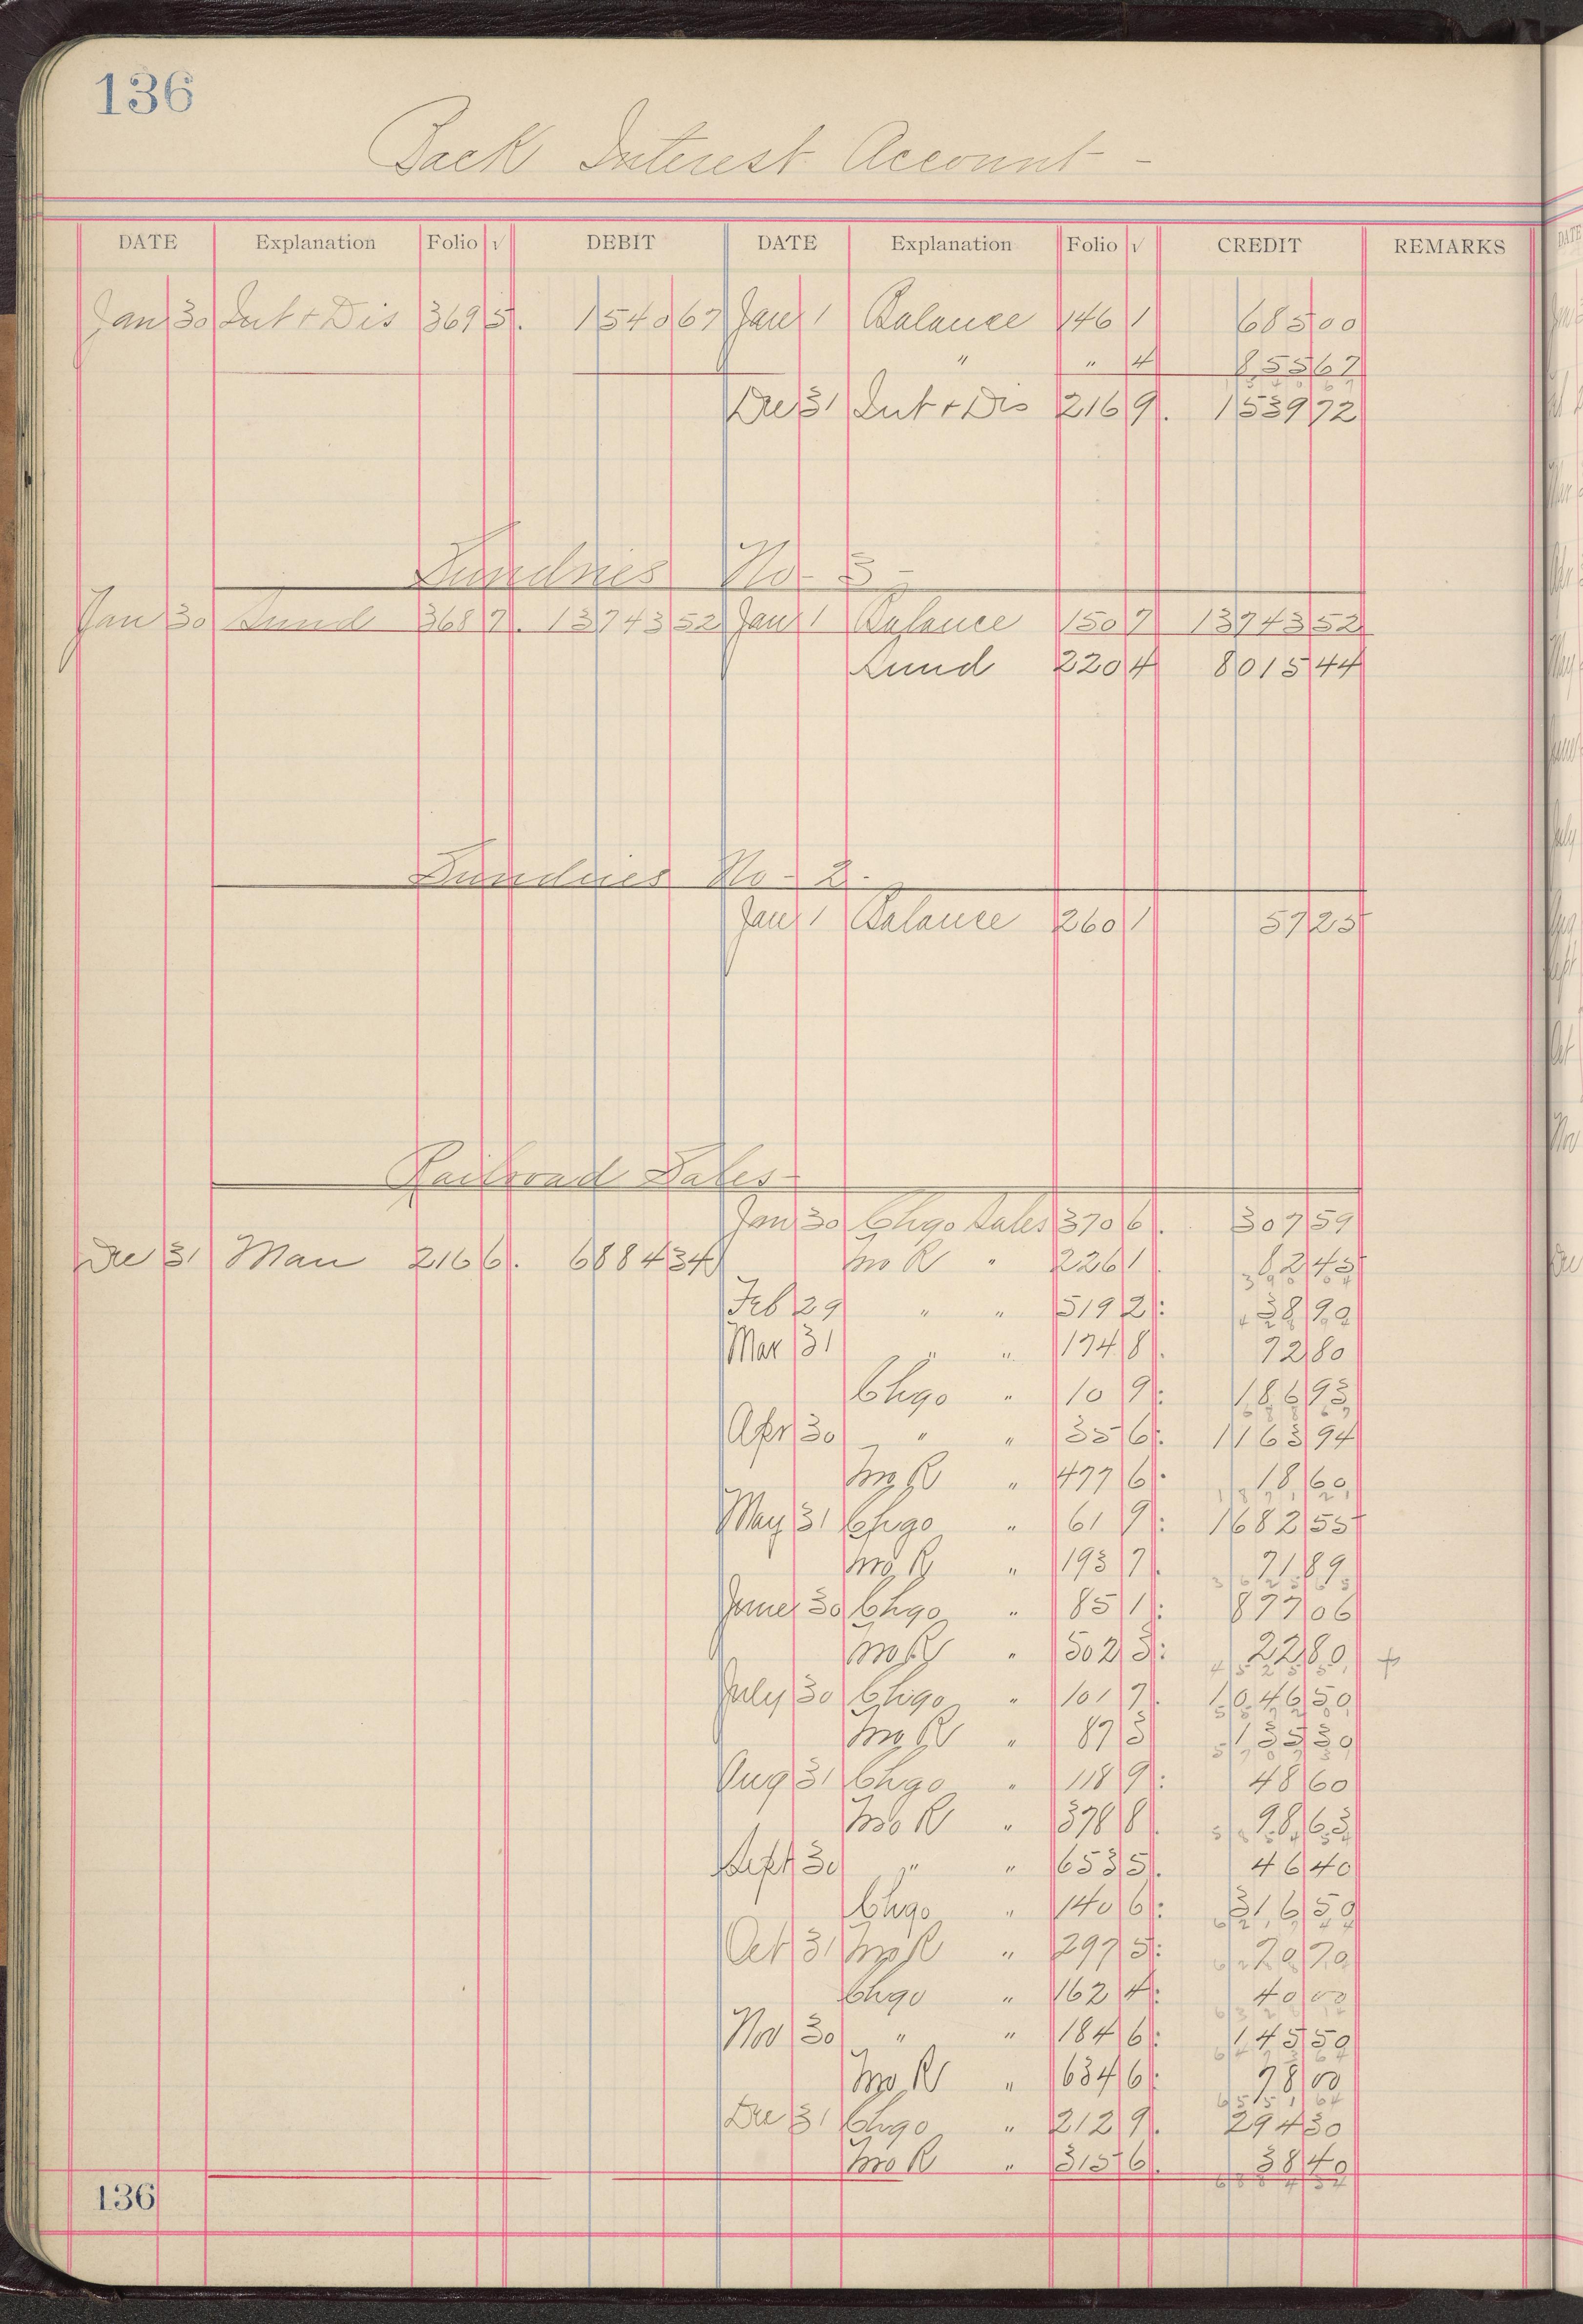 136
Back Interest Account -
DATE Explanation Folio √ DEBIT DATE Explanation Folio √ CREDIT REMARKS
Jan 30 Int + Dis 369 5. 1540 67 Jan 1 Balance 146 1 685 00
" " 4 855 67
Dec 31 Int + Dis 216 9. 1539 72
Sundries No - 3 -
Jan 30 Sund 368 7. 13743 52 Jan 1 Balance 150 7 13743 52
Sund 220 4 8015 44
Sundries No - 2 -
Jan 1 Balance 260 1 57 25
Railroad Sales -
Jan 30 Chgo Sales 370 6. 307 59
Dec 31 Man 216 6. 6884 34 Mo R " 226 1. 82 45
Feb 29 " " 519 2: 38 90
Mar 31 " " 174 8. 72 80
Chgo " 10 9: 186 93
Apr 30 " " 35 6: 1163 94
Mo R " 477 6: 18 60
May 31 Chgo " 61 9: 1682 55
Mo R " 193 7. 71 89
June 30 Chgo " 85 1: 877 06
Mo R " 502 3: 22 80 +
July 30 Chgo " 101 7. 1046 50
Mo R " 87 3 135 30
Aug 31 Chgo " 118 9: 48 60
Mo R " 378 8. 98 63
Sept 30 " " 653 5. 46 40
Chgo " 140 6: 316 50
Oct 31 Mo R " 297 5: 70 70
Chgo " 162 4: 40 00
Nov 30 " " 184 6: 145 50
Mo R " 634 6: 78 00
Dec 31 Chgo " 212 9. 294 30
Mo R " 315 6. 38 40
6884 34
136